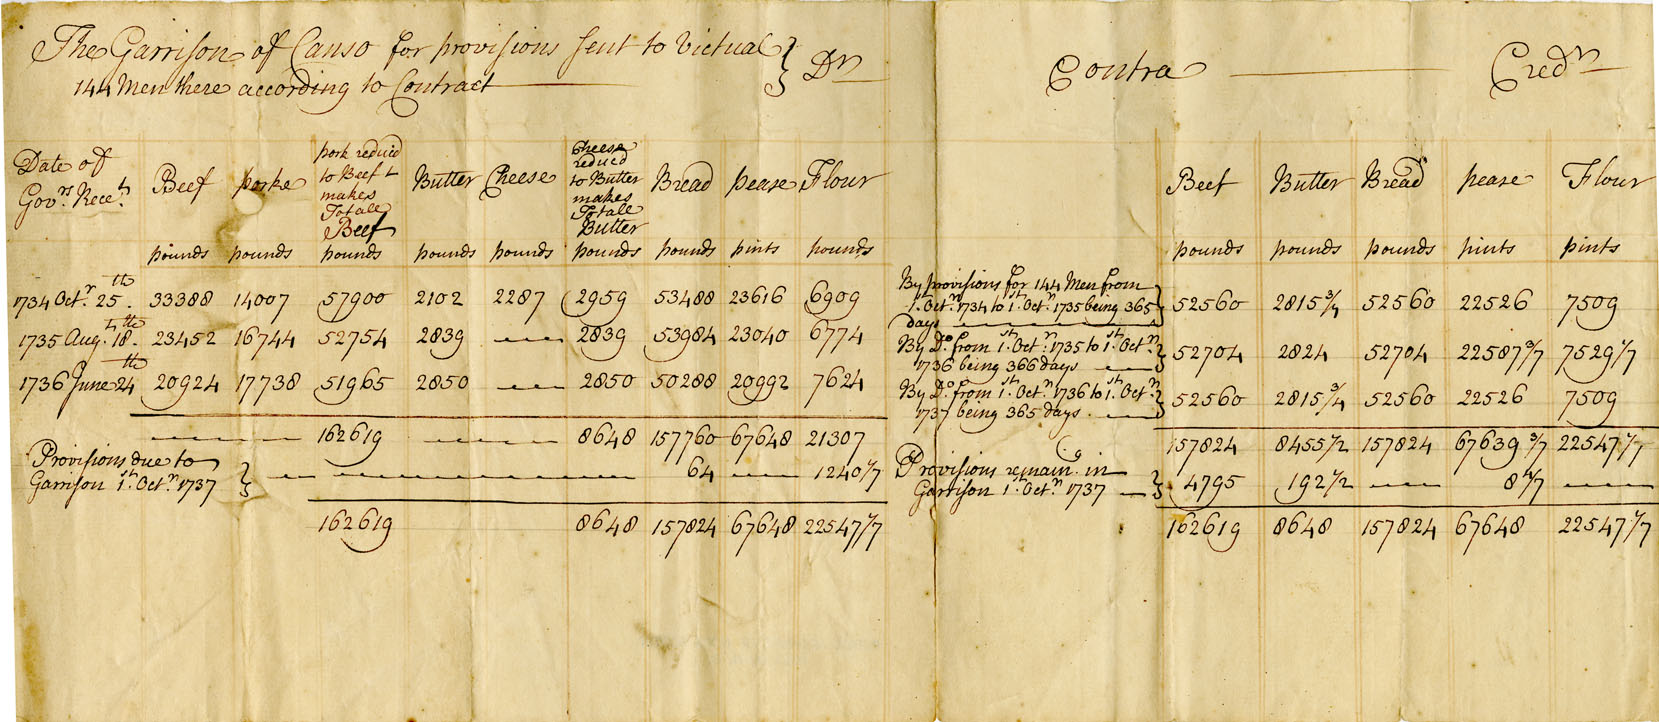 The Garrison of Canso for provisions sent to Victual } Dr
144 Men there according to Contract
Date of Govrs Recet. Beef porke pork reduced to Beef & makes Totale Beef Butter Cheese Cheese reduced to Butter makes Totale Butter Bread pease Flour
pounds pounds pounds pounds pounds pounds pounds pints pounds
1734 Octr. 25th. 33388 14007 57900 2102 2287 2959 53488 23616 6909
1735 Aug. 18th. 23452 16744 52754 2839 — 2839 53984 23040 6774
1736 June 24th 20924 17738 51965 2850 — 2850 50288 20992 7624
162619 — 8648 157760 67648 21307
Provisions due to
Garrison 1st. Octr. 1737 } — 64 — 1240 1/7
162619 8648 157824 67648 22547 1/7
Contra Credr
Beef Butter Bread pease Flour
pounds pounds pounds pints pints
By provisions for 144 Men from
1st. Octr. 1734 to 1st. Octr. 1735 being 365
days } 52560 2815 3/4 52560 22526 7509
By Do. from 1st. Octr. 1735 to 1st. Octr.
1736 being 366 days } 52704 2824 52704 22587 3/7 7529 1/7
By Do. from 1st. Octr. 1736 to 1st. Octr.
1737 being 365 days } 52560 2815 3/4 52560 22526 7509
157824 8455 1/2 157824 67639 3/7 22547 1/7
Provisions remaing. in
Garrison 1st. Octr. 1737 } 4795 192 1/2 — 8 4/7 —
162619 8648 157824 67648 22547 1/7